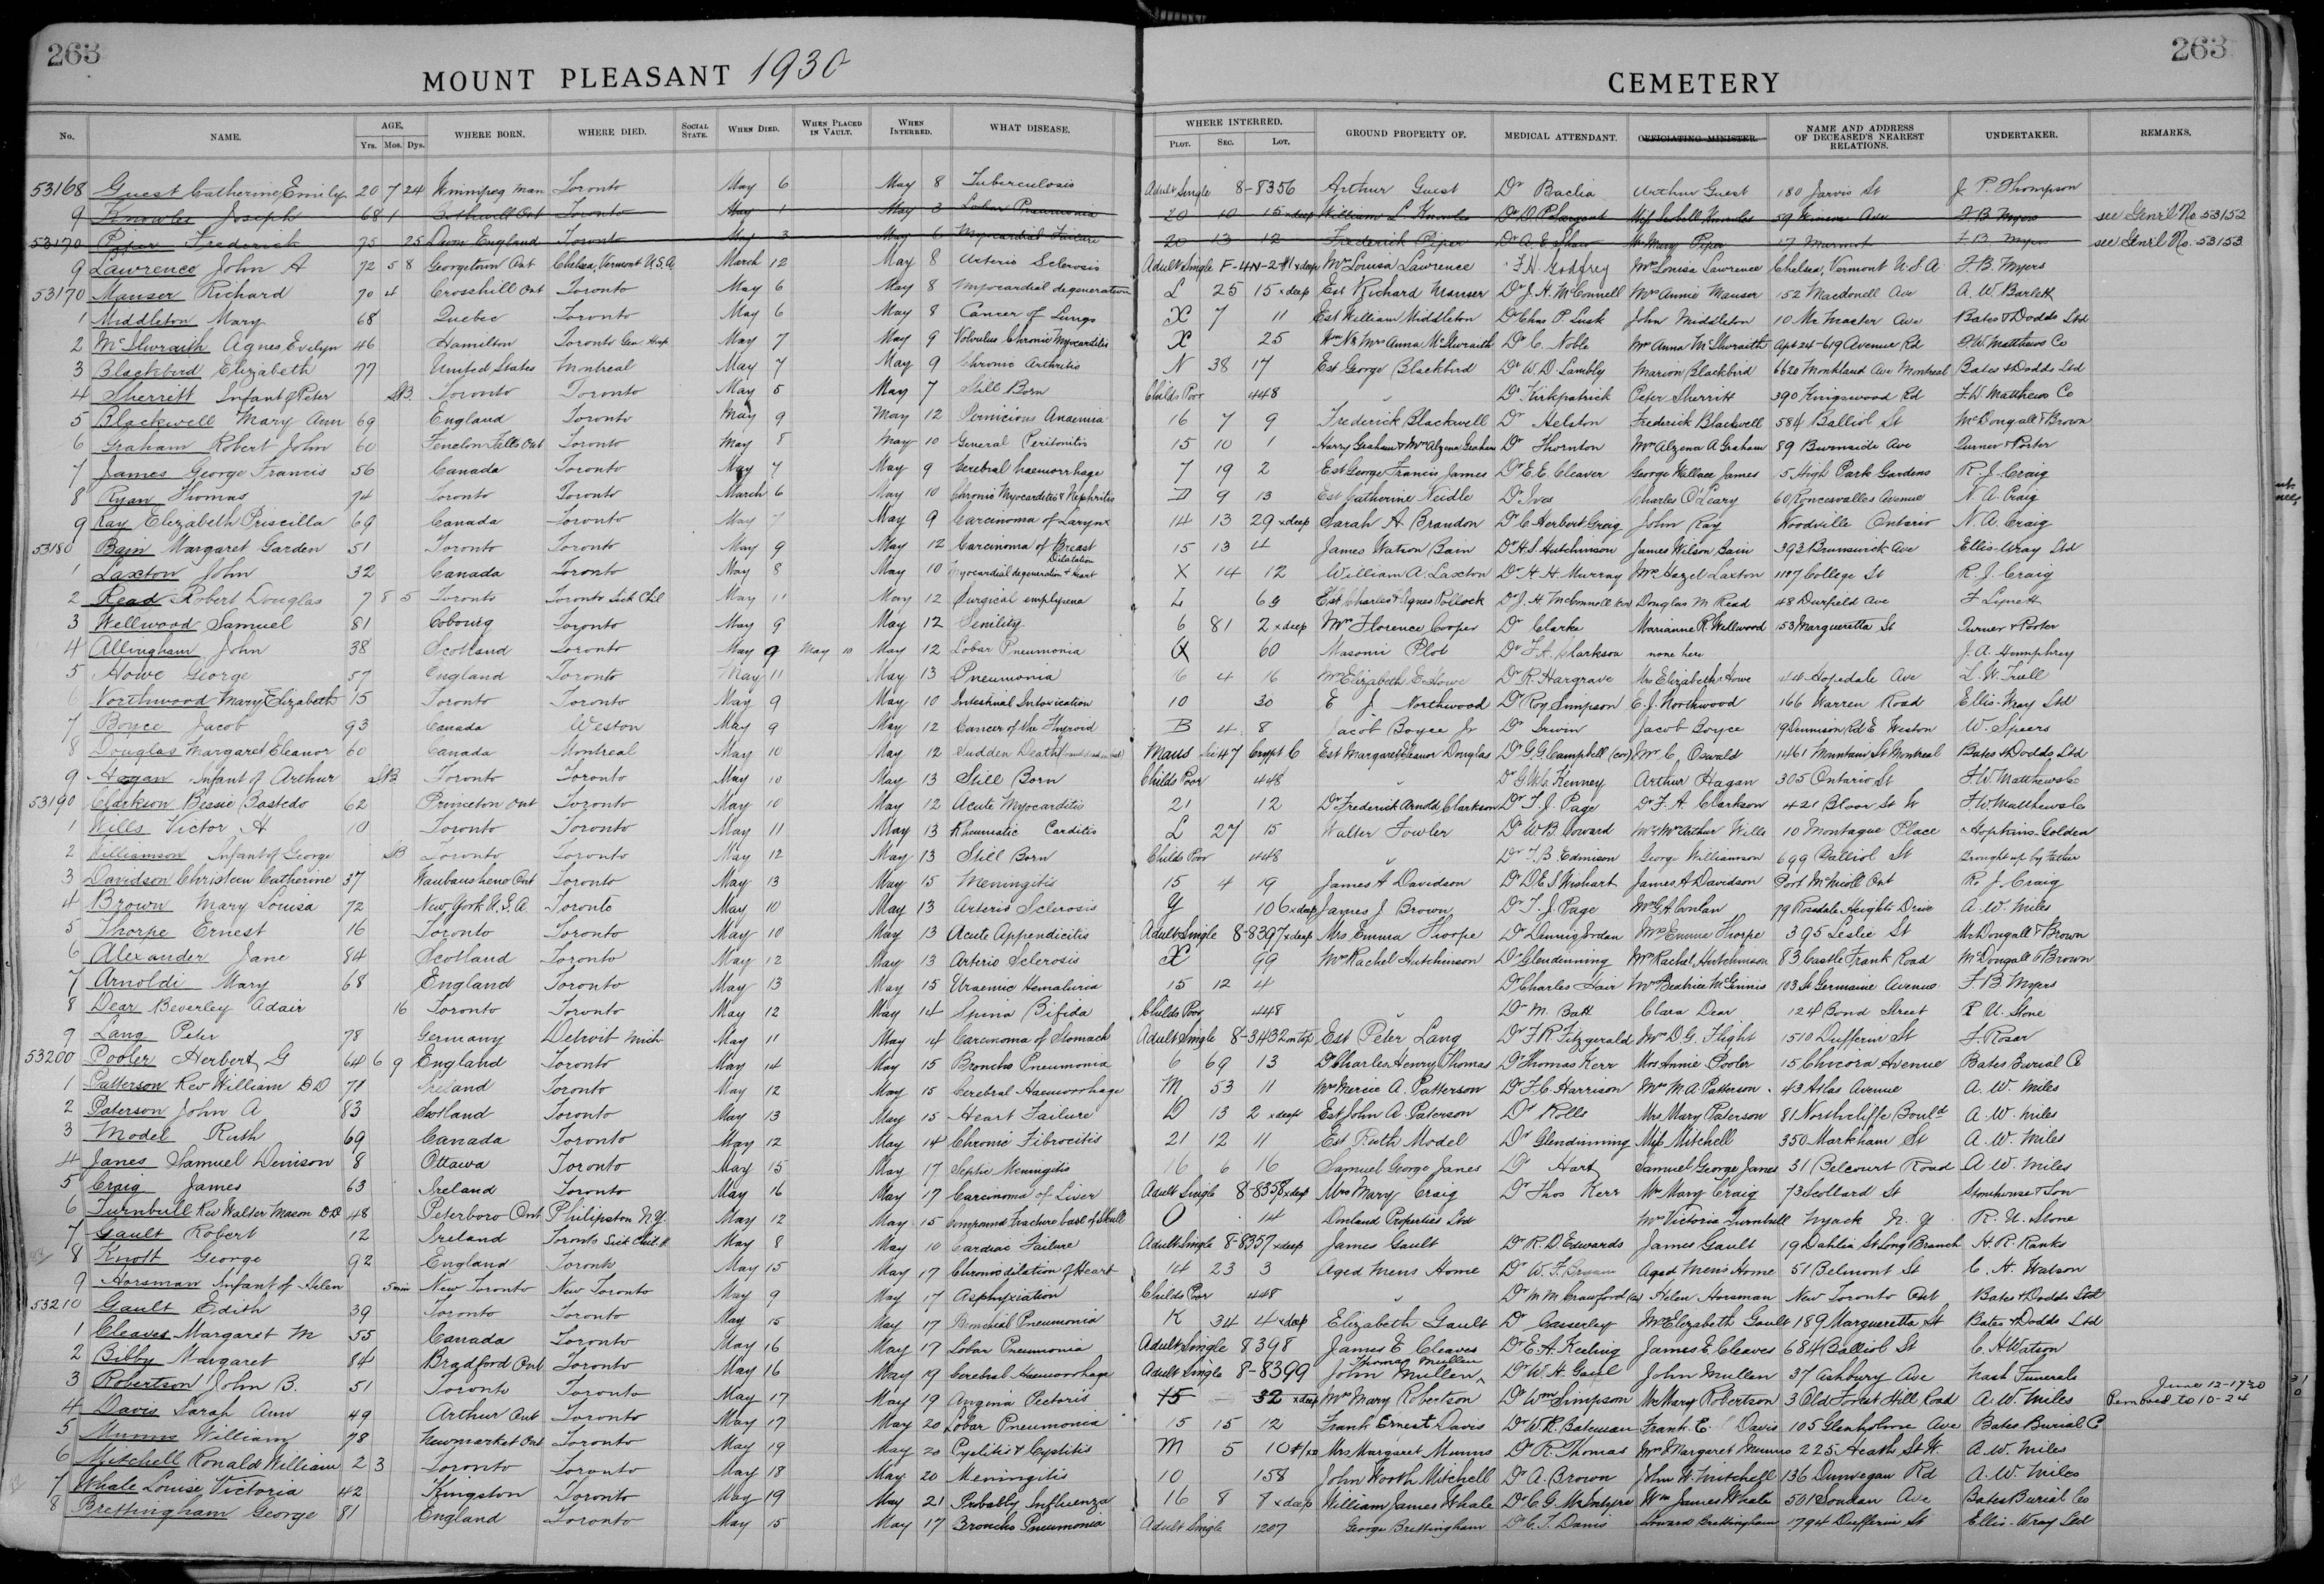 263
263
MOUNT PLEASANT 1930
CEMETERY
No. NAME. AGE, Yrs. Mos. Dys. WHERE BORN. WHERE DIED. SOCIAL STATE. WHEN DIED. WHEN PLACED IN VAULT. WHEN INTERRED. WHAT DISEASE. WHERE INTERRED. PLOT. SEC. LOT. GROUND PROPERTY OF. MEDICAL ATTENDANT. OFFICIATING MINISTER. NAME AND ADDRESS OF DECEASED'S NEAREST RELATIONS. UNDERTAKER. REMARKS.
53168 Guest Catherine Emily 20 7 24 Winnipeg Man Toronto May 6 May 8 Tuberculosis Adult Single 8-8356 Arthur Guest Dr Baclia Arthur Guest 180 Jarvis St J P. Thompson
9 Knowles Joseph 68 1 Bothwell Ont Toronto May 1 May 3 Lobar Pneumonia 20 10 15 x deep William L. Knowles Dr O P Sargent 59 Ave F B Myers see Gen'l No 53152
53170 Piper Frederick 75 25 Devon England Toronto May 3 May 6 Myocardial Failure 20 13 12 Frederick Piper Dr A. E Shaw Mrs Mary Piper 17 F. B. Myers see Gen'l No. 53153
9 Lawrence John A 72 5 8 Georgetown Ont Chelsea, Vermont U.S.A March 12 May 8 Arterio Sclerosis Adult Single F-4N-2 #1 x deep Mrs Louisa Lawrence F. H. Godfrey Mrs Louisa Lawrence Chelsea, Vermont U.S.A F. B. Myers
53170 Manser Richard 70 4 Crosshill Ont Toronto May 6 May 8 Myocardial degeneration L 25 15 x deep Est Richard Manser Dr J. H. McConnell Mrs Annie Manser 152 Macdonell Ave A. W. Barlett
1 Middleton Mary 68 Quebec Toronto May 6 May 8 Cancer of Lungs X 7 11 Est William Middleton Dr Chas P. Lusk John Middleton 10 McMaster Ave Bates & Dodds Ltd
2 McIlwraith Agnes Evelyn 46 Hamilton Toronto Gen Hosp May 7 May 9 Volvulus Chronic Myocarditis X 25 Wm & Mrs Anna McIlwraith Dr C. Noble Mrs Anna McIlwraith Apt 24-619 Avenue Rd F. W. Matthews Co
3 Blackbird Elizabeth 77 United States Montreal May 7 May 9 Chronic Arthritis N 38 17 Est George Blackbird Dr W. D. Lambly Marion Blackbird 6620 Monkland Ave Montreal Bates & Dodds Ltd
4 Sherritt Infant of Peter SB. Toronto Toronto May 5 May 7 Still Born Childs Poor 448 " Dr Kirkpatrick Peter Sherritt 390 Kingswood Rd F. W. Matthews Co
5 Blackwell Mary Ann 69 England Toronto May 9 May 12 Pernicious Anaemia 16 7 9 Frederick Blackwell Dr Helston Frederick Blackwell 584 Balliol St McDougall & Brown
6 Graham Robert John 60 Fenelon Falls Ont Toronto May 8 May 10 General Peritonitis 15 10 1 Harry Graham & Mrs Alzena Graham Dr Thornton Mrs Alzena A Graham 89 Burnside Ave Turner & Porter
7 James George Francis 56 Canada Toronto May 7 May 9 Cerebral haemorrhage 7 19 2 Est George Francis James Dr E. E. Cleaver George Wallace James 5 High Park Gardens R. J. Craig
8 Ryan Thomas 74 Toronto Toronto March 6 May 10 Chronic Myocarditis & Nephritis D 9 13 Est Catherine Neidle Dr Ives Charles O'Leary 60 Roncesvalles Avenue N. A. Craig
9 Kay Elizabeth Priscilla 69 Canada Toronto May 7 May 9 Carcinoma of Larynx 14 13 29 x deep Sarah A Brandon Dr C Herbert Greig John Ray Woodville Ontario N. A. Craig
53180 Bain Margaret Garden 51 Toronto Toronto May 9 May 12 Carcinoma of Breast 15 13 4 James Watson Bain Dr H. S. Hutchinson James Wilson Bain 393 Brunswick Ave Ellis-Wray Ltd
1 Laxton John 32 Canada Toronto May 8 May 10 Myocardial degeneration & Dilatation heart X 14 12 William A. Laxton Dr H. H. Murray Mrs Hazel Laxton 1187 College St R. J. Craig
2 Read Robert Douglas 7 8 5 Toronto Toronto Sick Chil May 11 May 12 Surgical emphysema L 69 Est Charles & Agnes Pollock Dr J. H. McConnell (cor) Douglas M Read 48 Durfield Ave F Lynett
3 Wellwood Samuel 81 Cobourg Toronto May 9 May 12 Senility 6 81 2 x deep Mrs Florence Cooper Dr Clarke Marianne R. Wellwood 153 Margueretta St Turner & Porter
4 Allingham John 38 Scotland Toronto May 9 May 10 May 12 Lobar Pneumonia 60 Masonic Plot Dr F. A. Clarkson none here J. A. Humphrey
5 Howe George 57 England Toronto May 11 May 13 Pneumonia 6 4 16 Mrs Elizabeth E Howe Dr R. Hargrave Mrs Elizabeth Howe 44 Hopedale Ave L. W. Trull
6 Northwood Mary Elizabeth 15 Toronto Toronto May 9 May 10 Intestinal Intoxication 10 30 E J. Northwood Dr Roy Simpson E. J. Northwood 166 Warren Road Ellis-Wray Ltd
7 Boyce Jacob 93 Canada Weston May 9 May 12 Cancer of the Thyroid B 4 8 Jacob Boyce Jr Dr Irwin Jacob Boyce 19 Dennison Rd E Weston W. Speers
8 Douglas Margaret Eleanor 60 Canada Montreal May 10 May 12 Sudden Death Maus 47 Crypt C Est Margaret Eleanor Douglas Dr G. G. Campbell (cor) Mr C. Oswald 1461 Mountain St Montreal Bates & Dodds Ltd
9 Hagan Infant of Arthur SB Toronto Toronto May 10 May 13 Still Born Childs Poor 448 " Dr G. W. C. Kenney Arthur Hagan 305 Ontario St F. W. Matthews Co
53190 Clarkson Bessie Bastedo 62 Princeton Ont Toronto May 10 May 12 Acute Myocarditis 21 12 Dr Frederick Arnold Clarkson Dr T. J. Page Dr F. A. Clarkson 421 Bloor St W F. W. Matthews Co
1 Wills Victor A 10 Toronto Toronto May 11 May 13 Rheumatic Carditis L 27 15 Walter Fowler Dr W. B. Coward Mr & Mrs Arthur Wills 10 Montague Place Hopkins-Golden
2 Williamson Infant of George SB Toronto Toronto May 12 May 13 Still Born Childs Poor 448 " Dr T. B. Edmison George Williamson 699 Balliol St Brought up by Father
3 Davidson Christeen Catherine 37 Waubaushene Ont Toronto May 13 May 15 Meningitis 15 4 19 James A Davidson Dr D E S Wishart James A Davidson Port McNicoll Ont R. J. Craig
4 Brown Mary Louisa 72 New York U.S.A. Toronto May 10 May 13 Arterio Sclerosis Y 106 x deep James J Brown Dr T. J. Page Mrs G. A. Conlan 79 Rosedale Heights Drive A. W. Miles
5 Thorpe Ernest 16 Toronto Toronto May 10 May 13 Acute Appendicitis Adult Single 8-8397 x deep Mrs Emma Thorpe Dr Dennis Jordan Mrs Emma Thorpe 395 Leslie St McDougall & Brown
6 Alexander Jane 84 Scotland Toronto May 12 May 13 Arterio Sclerosis X 99 Mrs Rachel Hutchinson Dr Glendinning Mrs Rachel Hutchinson 83 Castle Frank Road McDougall & Brown
7 Arnoldi Mary 68 England Toronto May 13 May 15 Uraemic Hematuria 15 12 4 Dr Charles Hair Mrs Beatrice McGinnis 103 St Germaine Avenue F. B. Myers
8 Dear Beverley Adair 16 Toronto Toronto May 12 May 14 Spina Bifida Childs Poor 448 " Dr M. Batt Clara Dear 124 Bond Street R U. Stone
9 Lang Peter 78 Germany Detroit Mich May 11 May 14 Carcinoma of Stomach Adult Single 8-3432 on top Est Peter Lang Dr F. R. Fitzgerald Mrs D. G. Flight 1510 Dufferin St F Rosar
53200 Pooler Herbert G 64 6 9 England Toronto May 14 May 15 Broncho Pneumonia 6 69 13 Dr Charles Henry Thomas Dr Thomas Kerr Mrs Annie Pooler 15 Chicora Avenue Bates Burial Co
1 Patterson Rev William D D 71 Ireland Toronto May 12 May 15 Cerebral Haemorrhage M 53 11 Mrs Mercie A. Patterson Dr F. C. Harrison Mrs M. A. Patterson 43 Atlas Avenue A. W. Miles
2 Paterson John A 83 Scotland Toronto May 13 May 15 Heart Failure D 13 2 x deep Est John A. Paterson Dr Rolls Mrs Mary Paterson 81 Northcliffe Boul'd A. W. Miles
3 Model Ruth 69 Canada Toronto May 12 May 14 Chronic Fibrocitis 21 12 11 Est Ruth Model Dr Glendinning Miss Mitchell 350 Markham St A. W. Miles
4 Janes Samuel Denison 8 Ottawa Toronto May 15 May 17 Septic Meningitis 16 6 16 Samuel George Janes Dr Hart Samuel George Janes 31 Belcourt Road A. W. Miles
5 Craig James 63 Ireland Toronto May 16 May 17 Carcinoma of Liver Adult Single 8-8358 x deep Mrs Mary Craig Dr Thos Kerr Mrs Mary Craig 73 Scollard St Stonehouse & Son
6 Turnbull Rev Walter Mason D.D 48 Peterboro Ont Philipston N.Y. May 12 May 15 Compound Fracture base of Skull O 14 Donland Properties Ltd Mrs Victoria Turnbull Nyack N. Y R. U. Stone
7 Gault Robert 12 Ireland Toronto Sick Chil. H May 8 May 10 Cardiac Failure Adult Single 8-8357 x deep James Gault Dr R. D. Edwards James Gault 19 Dahlia St Long Branch H. R. Ranks
8 Knott George 92 England Toronto May 15 May 17 Chronic dilation of Heart 14 23 3 Aged Mens Home Dr W. F. Bryans Aged Men's Home 51 Belmont St C. H. Watson
9 Horsman Infant of Helen 5 min New Toronto New Toronto May 9 May 17 Asphyxiation Childs Poor 448 " Dr M M. Crawford Helen Horsman New Toronto Ont Bates & Dodds Ltd
53210 Gault Edith 39 Toronto Toronto May 15 May 17 Bronchial Pneumonia K 34 4 x deep Elizabeth Gault Dr Casserley Mrs Elizabeth Gault 189 Margueretta St Bates & Dodds Ltd
1 Cleaves Margaret M 55 Canada Toronto May 16 May 17 Lobar Pneumonia Adult Single 8398 James E Cleaves Dr E. A. Keeling James E. Cleaves 684 Balliol St C. H Watson
2 Bibby Margaret 84 Bradford Ont Toronto May 16 May 19 Cerebral Haemorrhage Adult Single 8-8399 John Mullen, Thomas Mullen Dr W. H. Gaul John Mullen 37 Ashbury Ave Nash Funerals
3 Robertson John B. 51 Toronto Toronto May 17 May 19 Angina Pectoris 15 32 x deep Mrs Mary Robertson Dr Wm Simpson Mrs Mary Robertson 3 Old Forest Hill Road A. W. Miles June 12-1930 Removed to 10-24
4 Davis Sarah Ann 49 Arthur Ont Toronto May 17 May 20 Lobar Pneumonia 15 15 12 Frank Ernest Davis Dr W. R. Bateman Frank E. Davis 105 Glenholme Ave Bates Burial Co
5 Munns William 78 Newmarket Ont Toronto May 19 May 20 Pyelitis & Cystitis M 5 10 Mrs Margaret Munns Dr R. Thomas Mrs Margaret Munns 225 Heath St W. A. W. Miles
6 Mitchell Ronald William 2 3 Toronto Toronto May 18 May 20 Meningitis 10 158 John Worth Mitchell Dr A. Brown John W. Mitchell 136 Dunvegan Rd A. W. Miles
7 Whale Louise Victoria 42 Kingston Toronto May 19 May 21 Probably Influenza 16 8 8 x deep William James Whale Dr C. G. McIntyre Wm James Whale 501 Soudan Ave Bates Burial Co
8 Brettingham George 81 England Toronto May 15 May 17 Broncho Pneumonia Adult Single 1207 George Brettingham Dr C. T. Danis Howard Brettingham 1794 Dufferin St Ellis-Wray Ltd